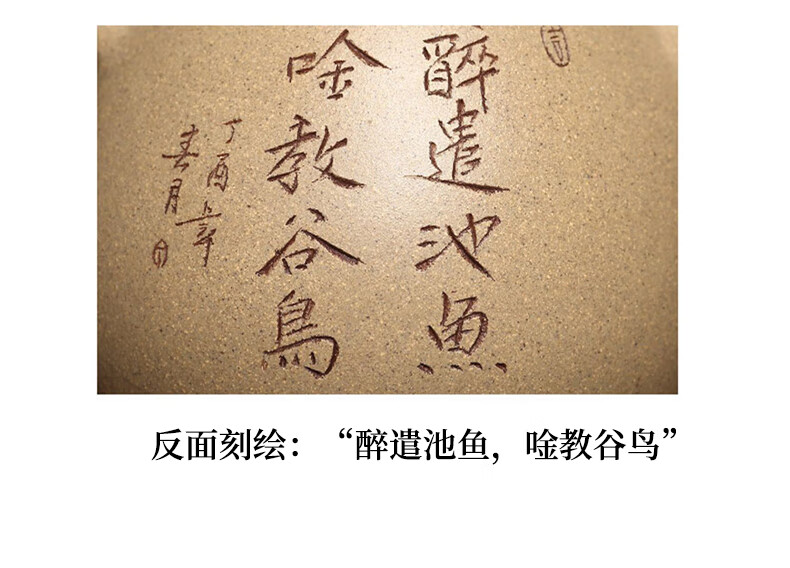 醉遣池魚
唫教谷鳥
丁酉年
春月
反面刻绘：“醉遣池鱼，唫教谷鸟”